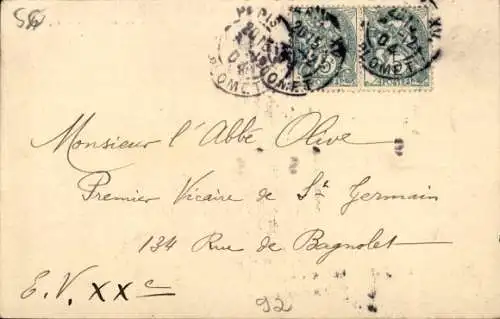 PARIS XV
BLOMET
Monsieur l'Abbé Olive
Premier Vicaire de St Germain
134 Rue de Bagnolet
E.V. XXe
92